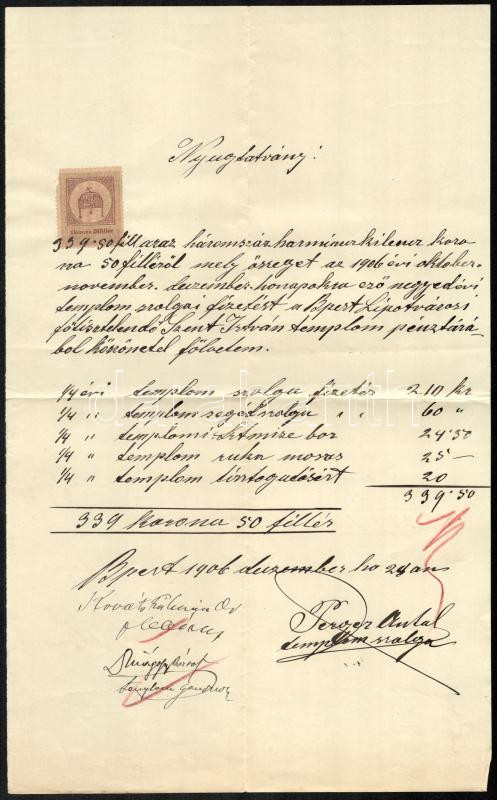 Nyugtatvány!
1 korona 20 fillér
339·50 fill azaz háromszáz harmincz kilencz koro
na 50 fillérről mely összeget az 1906 évi oktober-
november. deczember honapokra eső negyedévi
templom szolgai fizetést a Bpest Lipotvárosi
főtisztelendő Szent István templom pénztárá-
ból köszönetel fölvetem.
1/4 évi templom szolga fizetés 210 kr
1/4 " templom segédszolga " " 60 "
1/4 " templomi bor 24·50
1/4 " templom ruha mosás 25 —
1/4 " templom 20
339·50
339 korona 50 fillér
Bpest 1906 deczember ho 24 én
Kováts Kálmán
Antal
templom szolga
templom gondnok